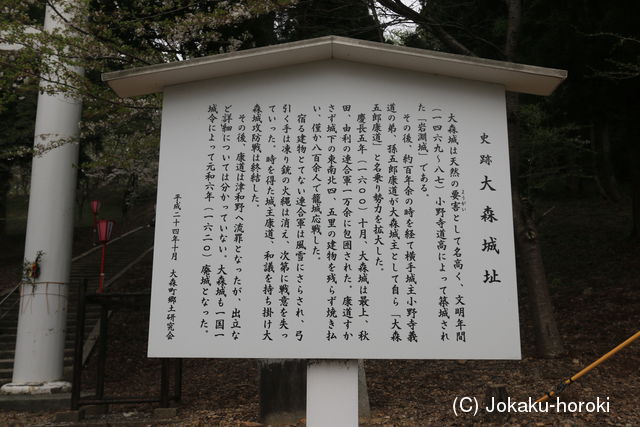 史跡 大森城址
大森城は天然の要害として名高く、文明年間
ようがい
（一四六九〜八七）小野寺道高によって築城され
た「岩淵城」である。
その後、約百年余の時を経て横手城主小野寺義
道の弟、孫五郎康道が大森城主として自ら「大森
五郎康道」と名乗り勢力を拡大した。
慶長五年（一六〇〇）十月、大森城は最上、秋
田、由利の連合軍一万余に包囲された。康道すか
さず城下の東南北四、五里の建物を残らず焼き払
い、僅か八百余人で籠城応戦した。
宿る建物とてない連合軍は風雪にさらされ、弓
引く手は凍り銃の火縄は消え、次第に戦意を失っ
ていった。時を得た城主康道、和議を持ち掛け大
森城攻防戦は終結した。
その後、康道は津和野へ流罪となったが、出立な
ど詳細については分かっていない。大森城も一国一
城令によって元和六年（一六二〇）廃城となった。
平成二十四年十月 大森町郷土研究会
(C) Jokaku-horoki